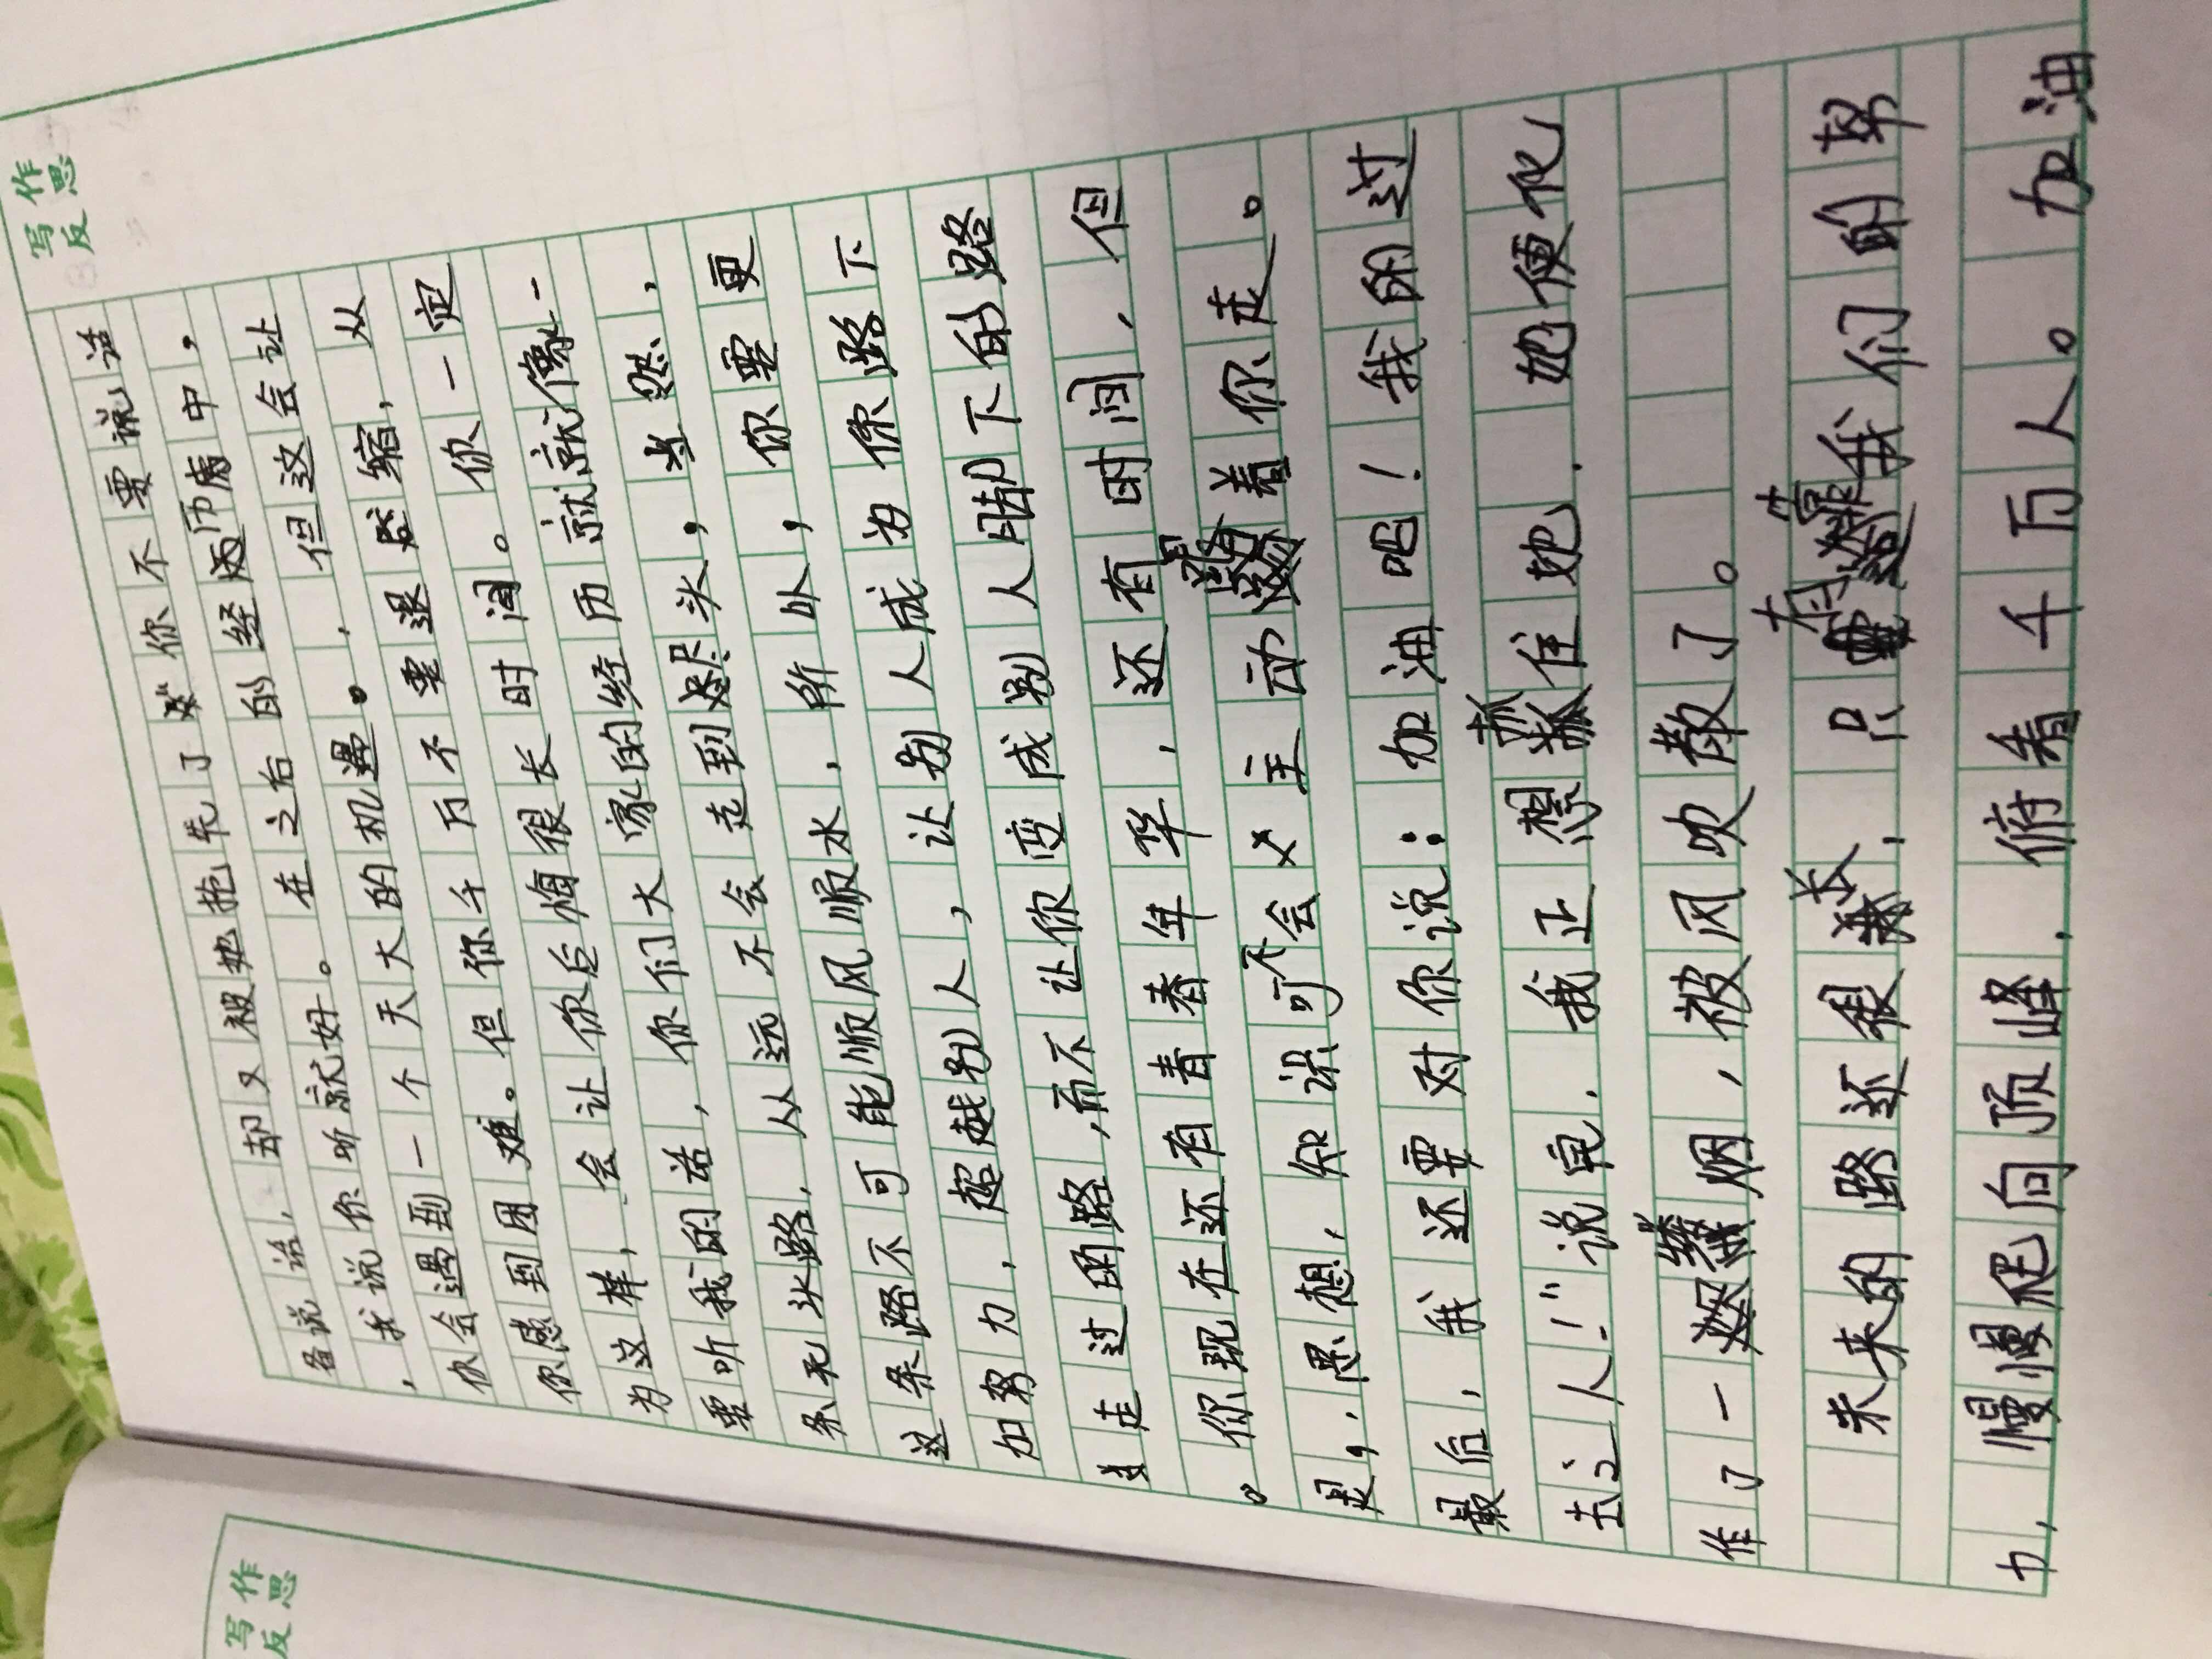 写作
反思
备说话，却又被她抢先了"你不要说话
，我说你听就好。在之后的经历中，
你会遇到一个天大的机遇。，但这会让
你感到困难。但你千万不要退缩，从
为这样，会让你后悔很长时间。你一定
要听我的话，你们大家的经历就就像一
条无头路，从远不会走到尽头，当然，
这条路不可能顺风顺水，所以，你要更
加努力，超越别人，让别人成为你路下
走过的路，而不让你变成别人脚下的路
。你现在还有青春年华，还有时间，但
是，，思想，知识可不会主动跟着你走。
最后，我还要对你说：加油吧！我的过
去之人！"说完，我正想抓住她，她便化
作了一缕烟，被风吹散了。
未来的路还很长，只有在我们的努
力，慢慢爬向顶峰，俯看千万人。加油
写作
反思